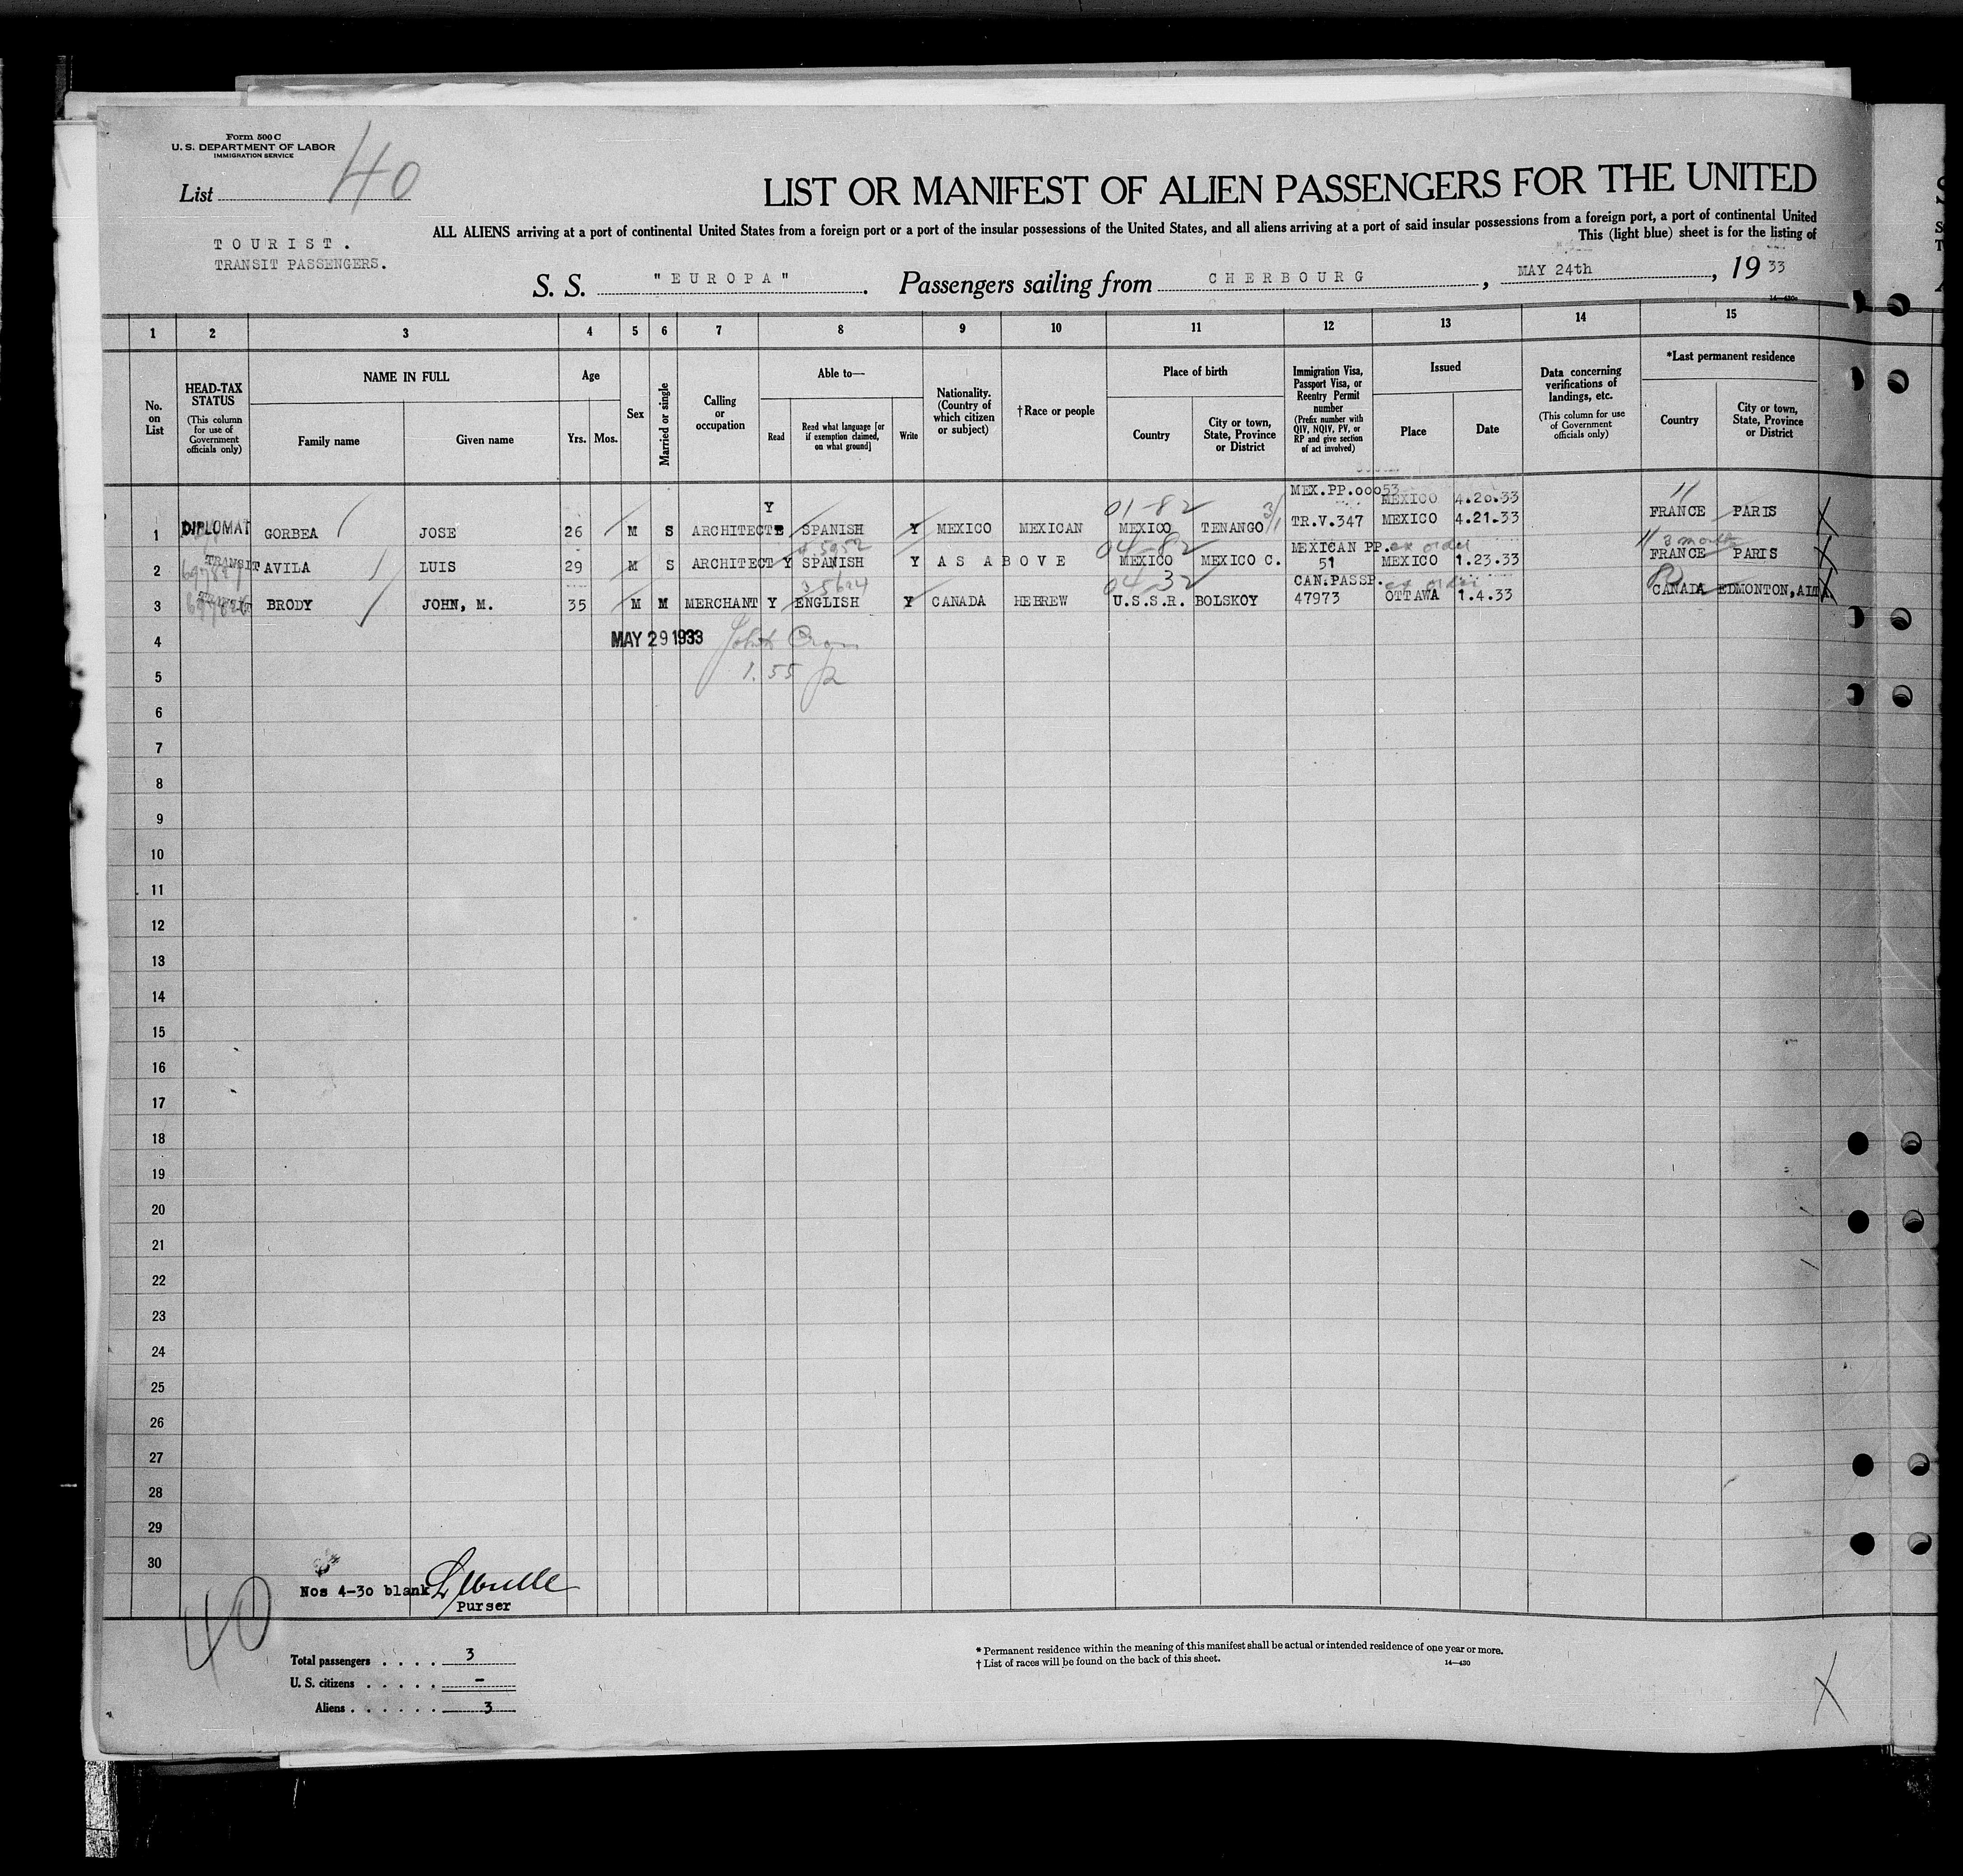 Form 500 C
U. S. DEPARTMENT OF LABOR
IMMIGRATION SERVICE
List 40
LIST OR MANIFEST OF ALIEN PASSENGERS FOR THE UNITED
ALL ALIENS arriving at a port of continental United States from a foreign port or a port of the insular possessions of the United States, and all aliens arriving at a port of said insular possessions from a foreign port, a port of continental United
This (light blue) sheet is for the listing of
TOURIST.
TRANSIT PASSENGERS.
S. S. "EUROPA". Passengers sailing from CHERBOURG, MAY 24th, 19 33
14—430
1 2 3 4 5 6 7 8 9 10 11 12 13 14 15
No. on List
HEAD-TAX STATUS
(This column for use of Government officials only)
NAME IN FULL
Family name
Given name
Age
Yrs. Mos.
Sex
Married or single
Calling or occupation
Able to—
Read
Read what language [or if exemption claimed, on what ground]
Write
Nationality. (Country of which citizen or subject)
† Race or people
Place of birth
Country
City or town, State, Province or District
Immigration Visa, Passport Visa, or Reentry Permit number
(Prefix number with QIV, NQIV, PV, or RP and give section of act involved)
Issued
Place
Date
Data concerning verifications of landings, etc.
(This column for use of Government officials only)
*Last permanent residence
Country
City or town, State, Province or District
Y 01-82 MEX.PP.00053 MEXICO 4.20.33
1 DIPLOMAT GORBEA JOSE 26 M S ARCHITECT SPANISH Y MEXICO MEXICAN MEXICO TENANGO 3/1 TR.V.347 MEXICO 4.21.33 FRANCE PARIS
04-82 MEXICAN PP. ex order 3 months
2 TRANSIT AVILA LUIS 29 M S ARCHITECT Y SPANISH Y AS ABOVE MEXICO MEXICO C. 51 MEXICO 1.23.33 FRANCE PARIS
04-32 CAN.PASSP. ex order
3 TRANSIT BRODY JOHN, M. 35 M M MERCHANT Y ENGLISH Y CANADA HEBREW U.S.S.R. BOLSKOY 47973 OTTAWA 1.4.33 CANADA EDMONTON, ALTA
4 MAY 29 1933
5 1.55
6
7
8
9
10
11
12
13
14
15
16
17
18
19
20
21
22
23
24
25
26
27
28
29
30
Nos 4-30 blank
Purser
40
Total passengers . . . . 3
U. S. citizens . . . . . -
Aliens . . . . . . 3
* Permanent residence within the meaning of this manifest shall be actual or intended residence of one year or more.
† List of races will be found on the back of this sheet.
14—430